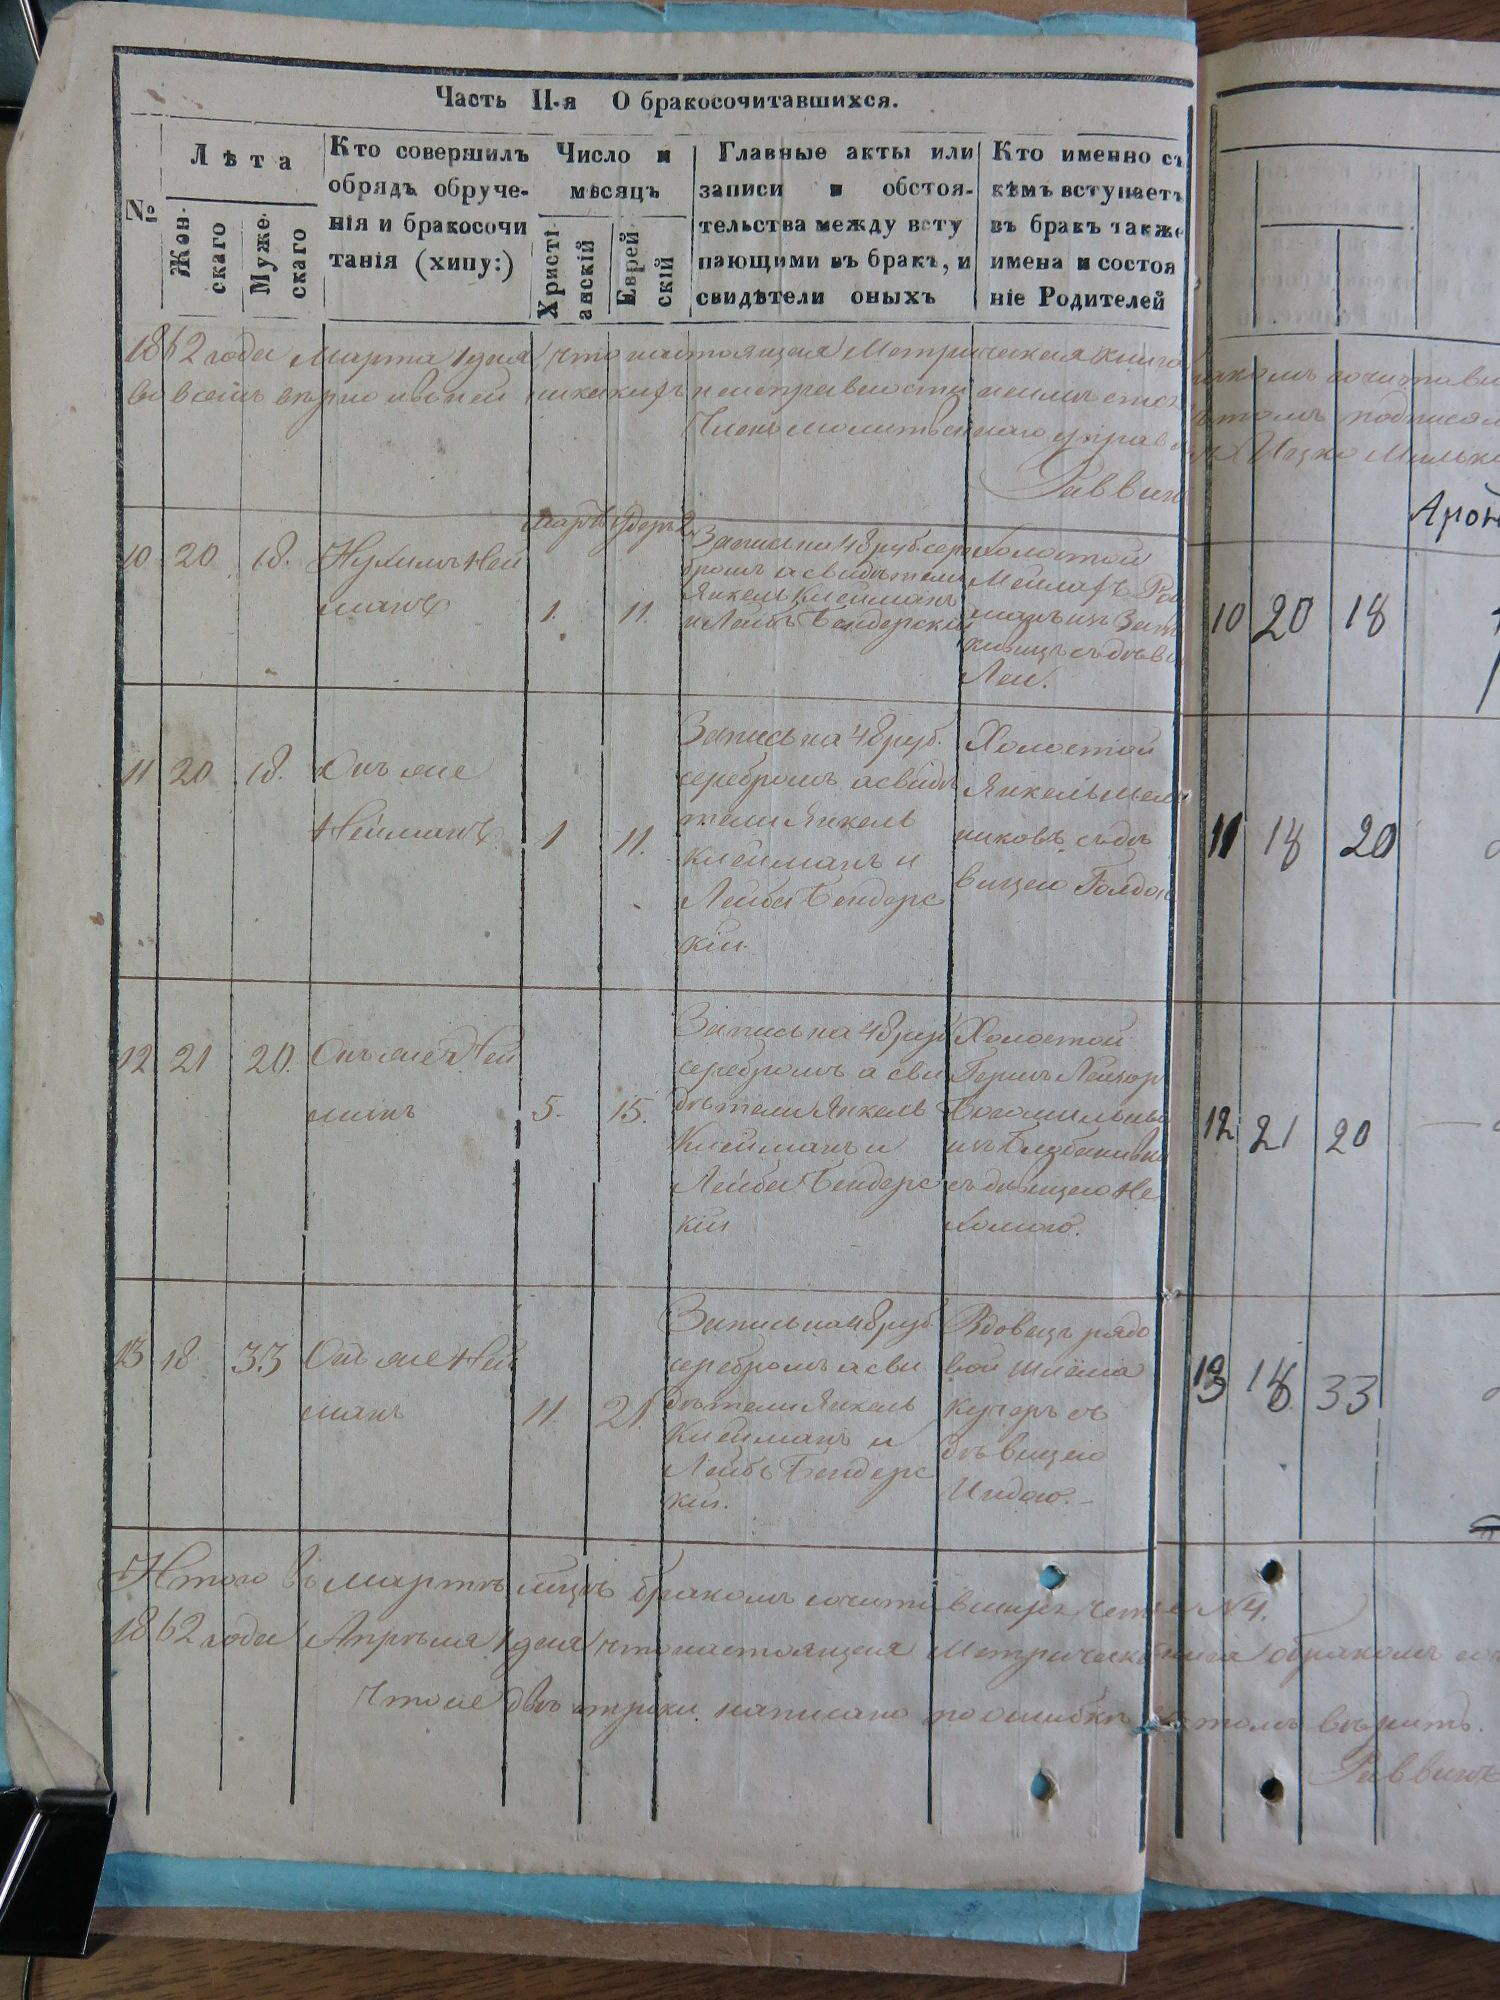 Часть II-я О бракосочитавшихся.
№
Лѣта
Жен-
скаго
Муже-
скаго
Кто совершилъ
обрядъ обруче-
нія и бракосочи
танія (хипу:)
Число и
мѣсяцъ
Христі-
анскій
Еврей-
скій
Главные акты или
записи и обстоя-
тельства между всту
пающими въ бракъ, и
свидѣтели оныхъ
Кто именно съ
кѣмъ вступаетъ
въ бракъ также
имена и состоя
ніе Родителей
1862 года Марта 1 дня что настоящая Метрическая книга
во всемъ верно и въ ней никакихъ неисправности
Членъ Молитвеннаго
Раввинъ
10 20 18. Нухимъ Ней
манъ 1. 11.
Запись на 48 руб. сере
бромъ а свидѣтели
Янкель Клейманъ
и Лейбъ Бендерскій
Холостой
Леи.
11 20 18. Онъ же
Нейманъ 1 11.
Запись на 48 руб.
серебромъ а свидѣ
тели Янкель
Клейманъ и
Лейба Бендерс
кій.
Холостой
Янкель Мель
никовъ съ дѣ
вицею Голдою
12 21 20. Онъ же Ней
манъ 5. 15.
Запись на 48 руб
серебромъ а сви
дѣтели Янкель
Клейманъ и
Лейба Бендерс
кій
Холостой
Гершъ
съ дѣвицею Не
хомою.
13 18 33 Онъ же Ней
манъ 11. 21.
Запись на 48 руб.
серебромъ а сви
дѣтели Янкель
Клейманъ и
Лейбъ Бендерс
кій.
Вдовецъ рядо
вой Шлёма
Кучеръ съ
дѣвицею
Индою.
Итого въ Мартѣ мцѣ бракомъ сочитавшихся четыре № 4.
1862 года Апрѣля 1 дня что настоящая Метрическая книга о бракомъ
Что сіе двѣ строки написано по ошибкѣ въ томъ вѣрить.
Раввинъ
подписали
Ицко
10 20 18
11 18 20
12 21 20
13 18 33